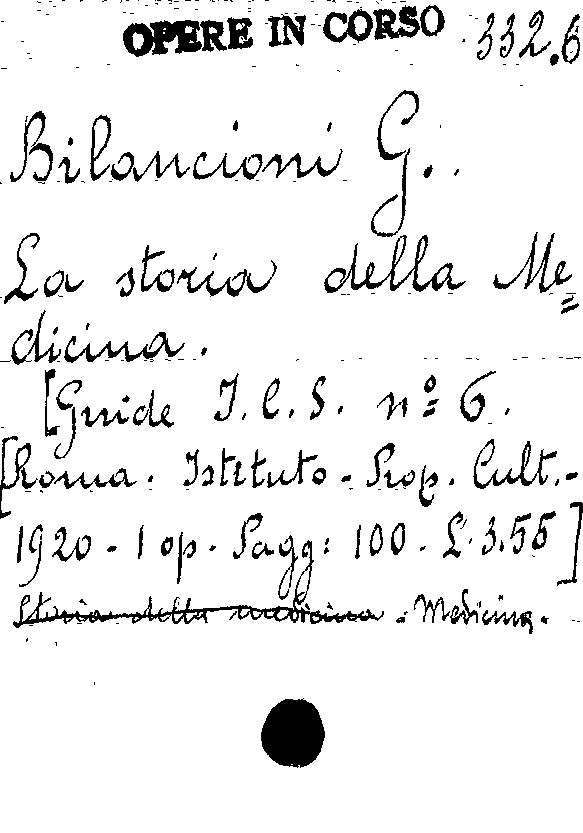 OPERE IN CORSO 332.6
Bilancioni G..
La storia della Me=
dicina.
[Guide I.C.S. nº 6.
[Roma. Istituto - Prop. Cult.-
1920 - 1 op. Pagg: 100. L. 3.55]
Storia della medicina. Medicina.